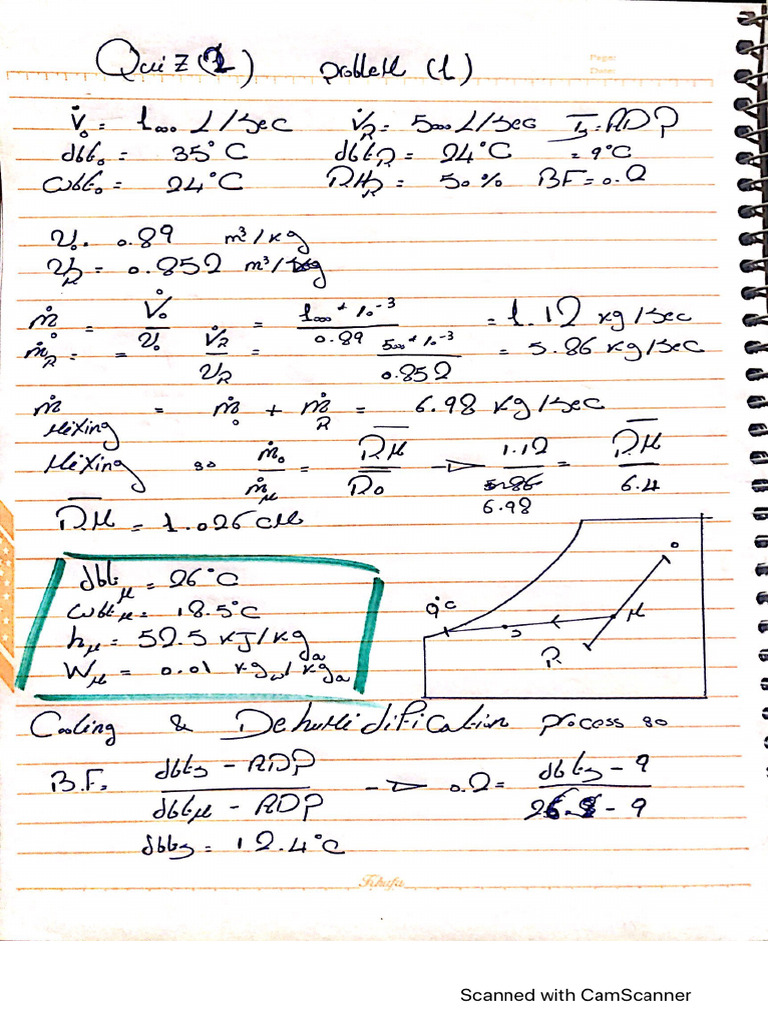 Quiz (2) Problem (1)
Paper:
Date:
V̇o = 1000 L/sec V̇R = 5000 L/sec Ts = ADP
dbto = 35°C dbtR = 24°C = 9°C
wbto = 24°C RHR = 50% BF = 0.2
υo = 0.89 m³/kg
υR = 0.852 m³/kg
ṁo = V̇o / υo = 1000 * 10⁻³ / 0.89 = 1.12 kg/sec
ṁR = = V̇R / υR = 5000 * 10⁻³ / 0.852 = 5.86 kg/sec
ṁ mixing = ṁo + ṁR = 6.98 kg/sec
Mixing so ṁo / ṁM = RM / RO → 1.12 / 6.98 = RM / 6.4
RM = 1.026 cm
dbtM = 26°C
wbtM = 18.5°C
hM = 52.5 kJ/kga
WM = 0.01 kgw/kga
9°C
o
M
S
R
Cooling & Dehumidification process so
B.F. = dbts - ADP / dbtM - ADP → 0.2 = dbts - 9 / 26 - 9
dbts = 12.4°C
Scanned with CamScanner